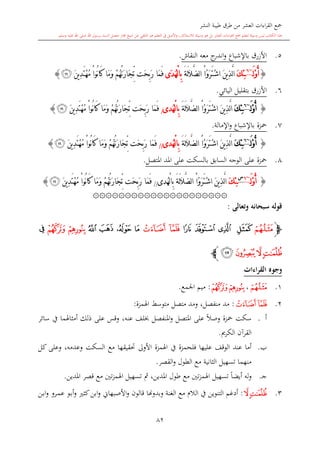 جمع القراءات العشر من طرق طيبة النشر
٥. الأزرق بالإشباع واندرج معه النقاش.
﴿ أُوْلَٰٓئِكَ ٱلَّذِينَ ٱشْتَرَوُاْ ٱلضَّلَٰلَةَ بِٱلْهُدَىٰ فَمَا رَبِحَت تِّجَٰرَتُهُمْ وَمَا كَانُواْ مُهْتَدِينَ ﴾
٦. الأزرق بتقليل اليائي.
﴿ أُوْلَٰٓئِكَ ٱلَّذِينَ ٱشْتَرَوُاْ ٱلضَّلَٰلَةَ بِٱلْهُدَىٰ فَمَا رَبِحَت تِّجَٰرَتُهُمْ وَمَا كَانُواْ مُهْتَدِينَ ﴾
٧. حمزة بالإشباع والإمالة.
﴿ أُوْلَٰٓئِكَ ٱلَّذِينَ ٱشْتَرَوُاْ ٱلضَّلَٰلَةَ بِٱلْهُدَىٰ فَمَا رَبِحَت تِّجَٰرَتُهُمْ وَمَا كَانُواْ مُهْتَدِينَ ﴾
٨. حمزة على الوجه السابق بالسكت على المد المتصل.
﴿ أُوْلَٰٓئِكَ ٱلَّذِينَ ٱشْتَرَوُاْ ٱلضَّلَٰلَةَ بِٱلْهُدَىٰ فَمَا رَبِحَت تِّجَٰرَتُهُمْ وَمَا كَانُواْ مُهْتَدِينَ ﴾
قوله سبحانه وتعالى :
﴿ مَثَلُهُمْ كَمَثَلِ ٱلَّذِى ٱسْتَوْقَدَ نَارًا فَلَمَّآ أَضَآءَتْ مَا حَوْلَهُۥ ذَهَبَ ٱللَّهُ بِنُورِهِمْ وَتَرَكَهُمْ فِى
ظُلُمَٰتٍ لَّا يُبْصِرُونَ ﴾
وجوه القراءات
١. مَثَلُهُمْ ، بِنُورِهِمْ وَتَرَكَهُمْ : ميم الجمع.
٢. فَلَمَّآ أَضَآءَتْ : مد منفصل، ومد متصل متوسط الهمزة:
أ . سكت حمزة وصلاً على المتصل والمنفصل بخلف عنه، وقس على ذلك أمثالهما في سائر
القرآن الكريم.
ب. أما عند الوقف عليها فلحمزة في الهمزة الأولى تحقيقها مع السكت وعدمه، وعلى كل
منهما تسهيل الثانية مع الطول والقصر.
جـ. وله أيضاً تسهيل الهمزتين مع طول المدين، ثم تسهيل الهمزتين مع قصر المدين.
٣. ظُلُمَٰتٍ لَّا : أدغم التنوين في اللام مع الغنة وبدونها قالون والأصبهاني وابن كثير وأبو عمرو وابن
٨٢